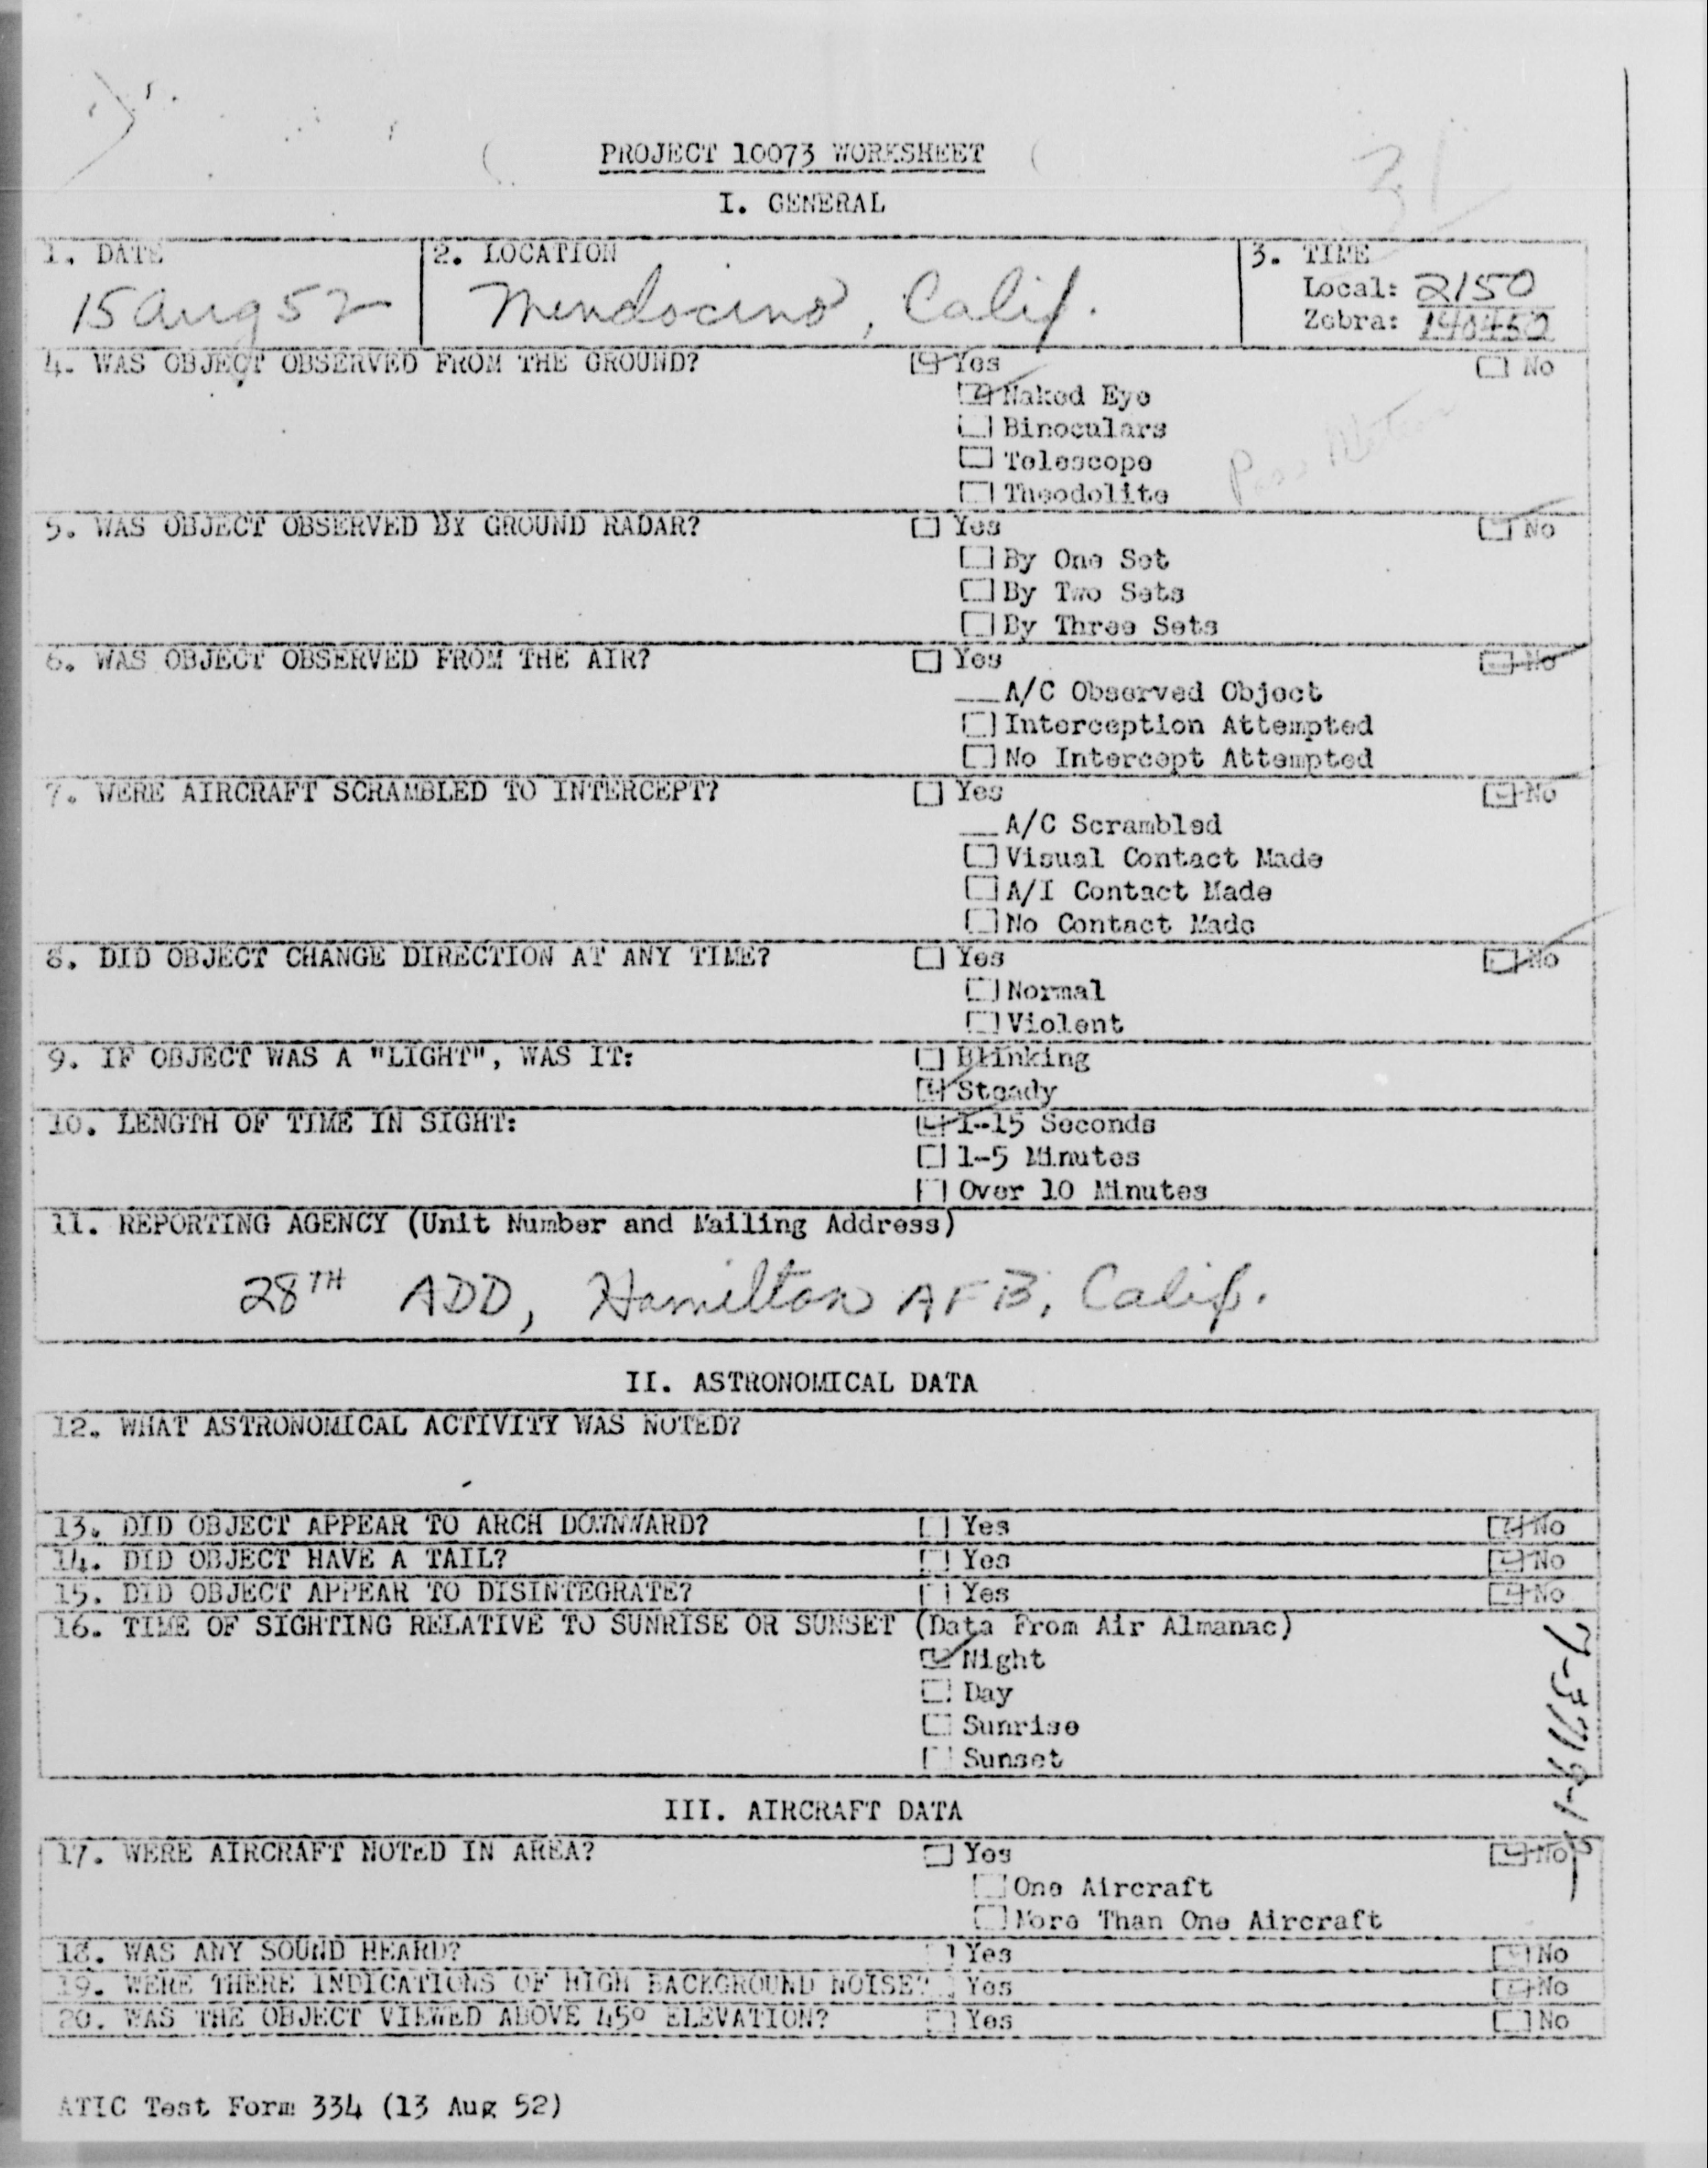 PROJECT 10073 WORKSHEET
I. GENERAL
1. DATE
15 Aug 52
2. LOCATION
Mendocino, Calif.
3. TIME
Local: 2150
Zebra: 140450
4. WAS OBJECT OBSERVED FROM THE GROUND? Yes No
Naked Eye
Binoculars
Telescope
Theodolite
5. WAS OBJECT OBSERVED BY GROUND RADAR? Yes No
By One Set
By Two Sets
By Three Sets
6. WAS OBJECT OBSERVED FROM THE AIR? Yes No
__A/C Observed Object
Interception Attempted
No Intercept Attempted
7. WERE AIRCRAFT SCRAMBLED TO INTERCEPT? Yes No
__A/C Scrambled
Visual Contact Made
A/I Contact Made
No Contact Made
8. DID OBJECT CHANGE DIRECTION AT ANY TIME? Yes No
Normal
Violent
9. IF OBJECT WAS A "LIGHT", WAS IT: Blinking
Steady
10. LENGTH OF TIME IN SIGHT: 1-15 Seconds
1-5 Minutes
Over 10 Minutes
11. REPORTING AGENCY (Unit Number and Mailing Address)
28TH ADD, Hamilton AFB, Calif.
II. ASTRONOMICAL DATA
12. WHAT ASTRONOMICAL ACTIVITY WAS NOTED?
13. DID OBJECT APPEAR TO ARCH DOWNWARD? Yes No
14. DID OBJECT HAVE A TAIL? Yes No
15. DID OBJECT APPEAR TO DISINTEGRATE? Yes No
16. TIME OF SIGHTING RELATIVE TO SUNRISE OR SUNSET (Data From Air Almanac)
Night
Day
Sunrise
Sunset
III. AIRCRAFT DATA
17. WERE AIRCRAFT NOTED IN AREA? Yes No
One Aircraft
More Than One Aircraft
18. WAS ANY SOUND HEARD? Yes No
19. WERE THERE INDICATIONS OF HIGH BACKGROUND NOISE? Yes No
20. WAS THE OBJECT VIEWED ABOVE 45° ELEVATION? Yes No
ATIC Test Form 334 (13 Aug 52)